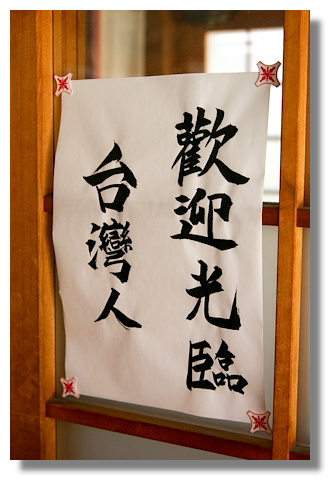 歡迎光臨
台灣人